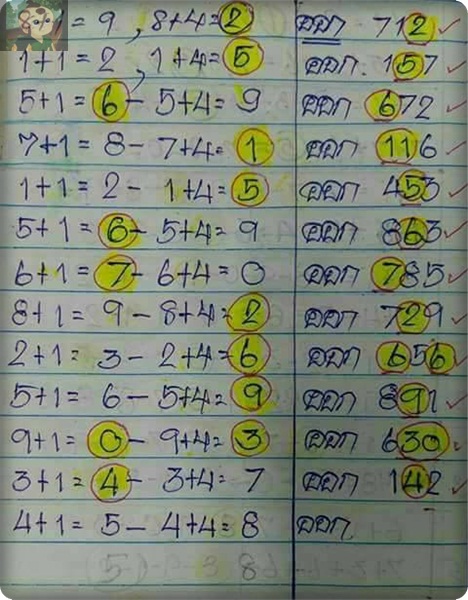 1 = 9 , 8+4= 2 ออก 712
1+1 = 2 , 1+4= 5 ออก . 157
5+1 = 6 - 5+4 = 9 ออก 672
7+1 = 8 - 7+4= 1 ออก 116
1+1 = 2 - 1+4 = 5 ออก 453
5+1 = 6 - 5+4= 9 ออก 863
6+1 = 7 - 6+4= 0 ออก 785
8+1 = 9 - 8+4= 2 ออก 729
2+1 = 3 - 2+4= 6 ออก 656
5+1 = 6 - 5+4= 9 ออก 891
9+1= 0 - 9+4= 3 ออก 630
3+1 = 4 - 3+4= 7 ออก 142
4+1 = 5 - 4+4= 8 ออก